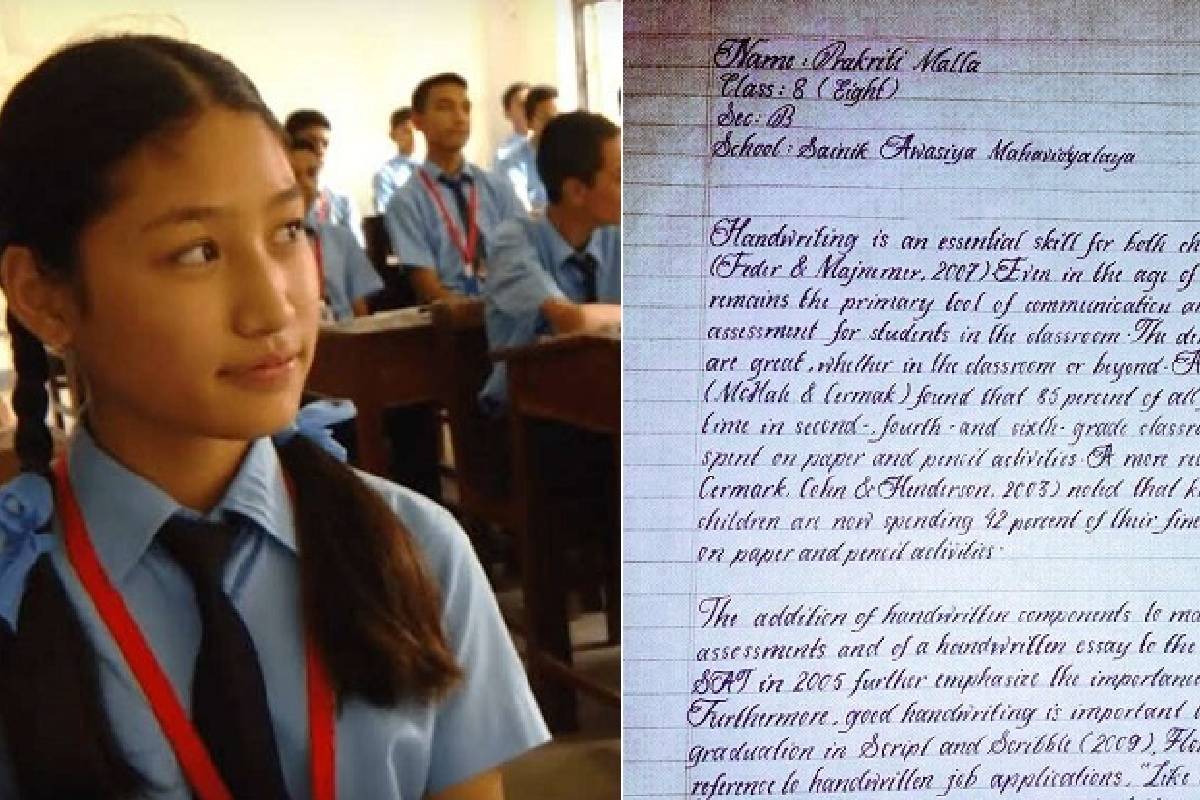 Name : Prakriti Malla
Class : 8 ( Eight )
Sec : B
School : Sainik Awasiya Mahavidyalaya
Handwriting is an essential skill for both
(Feder & Majnemer, 2007) Even in the age of
remains the primary tool of communication
assessment for students in the classroom. The
are great, whether in the classroom or beyond. A
(McHale & Cermak) found that 85 percent of all
time in second-, fourth- and sixth- grade
spent on paper and pencil activities. A more
Cermark, Cohn & Henderson, 2003) noted that
children are now spending 42 percent of their fine
on paper and pencil activities.
The addition of handwritten components to
assessments and of a handwritten essay to the
SAT in 2005 further emphasize the importance
Furthermore, good handwriting is important
graduation in Script and Scribble (2009),
reference to handwritten job applications, "Like